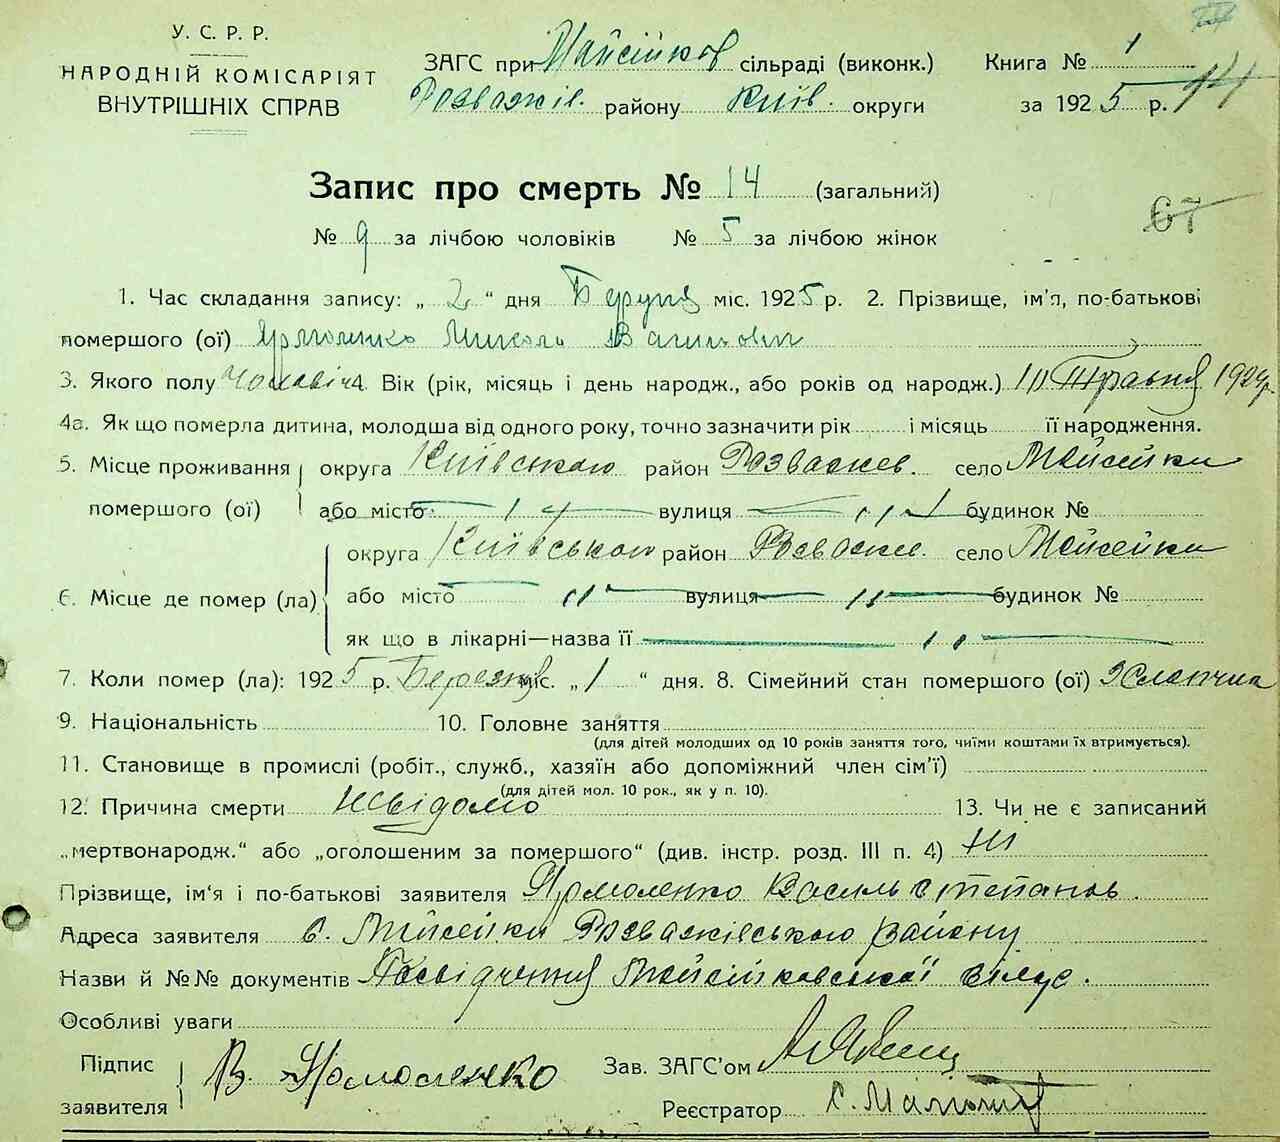 У. С. Р. Р.
НАРОДНІЙ КОМІСАРІЯТ
ВНУТРІШНІХ СПРАВ
ЗАГС при Майсійков сільраді (виконк.) Книга № 1
Розважів. району Київ. округи за 1925 р. 14
Запис про смерть № 14 (загальний)
67
№ 9 за лічбою чоловіків № 5 за лічбою жінок
1. Час складання запису: „ 2 “ дня міс. 1925 р. 2. Прізвище, ім'я, по-батькові
помершого (ої) Ярмоленко Микола
3. Якого полу Чоловіча. Вік (рік, місяць і день народж., або років од народж.) Травня 1924р
4а. Як що померла дитина, молодша від одного року, точно зазначити рік і місяць її народження.
5. Місце проживання округа Київського район Розважев. село Мойсейки
помершого (ої) або місто вулиця будинок №
округа Київського район Розваже. село Мойсейки
6. Місце де помер (ла) або місто вулиця будинок №
як що в лікарні—назва її
7. Коли помер (ла): 1925 р. Березня міс. „ 1 “ дня. 8. Сімейний стан помершого (ої)
9. Національність 10. Головне заняття
(для дітей молодших од 10 років заняття того, чиїми коштами їх втримується).
11. Становище в промислі (робіт., служб., хазяїн або допоміжний член сім'ї)
(для дітей мол. 10 рок., як у п. 10).
12. Причина смерти Невідомо 13. Чи не є записаний
„мертвонародж.“ або „оголошеним за помершого“ (див. інстр. розд. III п. 4) Ні
Прізвище, ім'я і по-батькові заявителя Ярмоленко Василь Степанов.
Адреса заявителя с. Мойсейки Розважівського району
Назви й №№ документів Посвідчення Мойсійковської сілус.
Особливі уваги
Підпис
заявителя В. Ярмоленко
Зав. ЗАГС'ом
Реєстратор С.